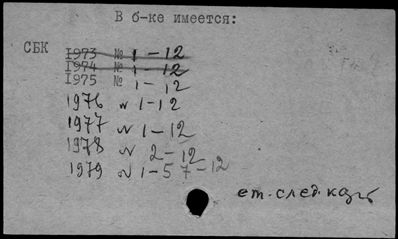 В б-ке имеется:
СБК 1973 № 1-12
1974 № 1-12
1975 № 1-12
1976 № 1-12
1977 № 1-12
1978 № 2-12
1979 № 1-5 7-12
см. след. карт